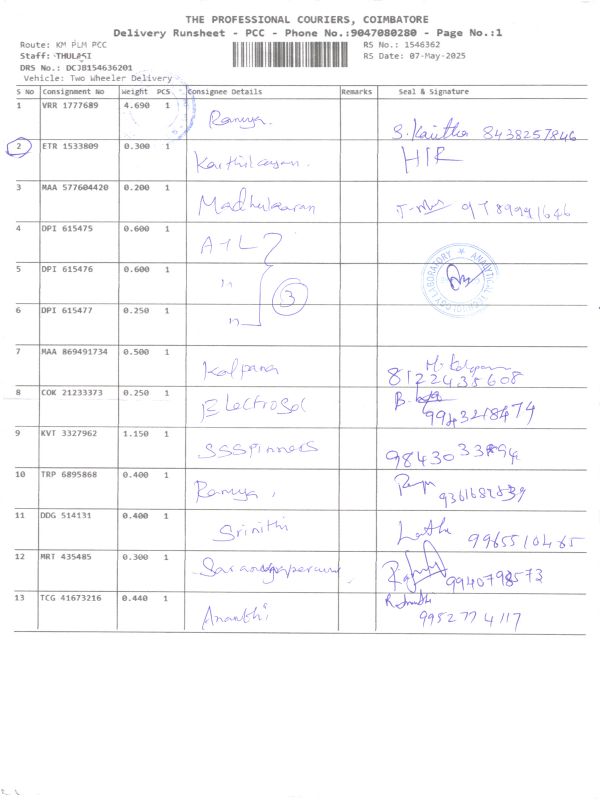 THE PROFESSIONAL COURIERS, COIMBATORE
Delivery Runsheet - PCC - Phone No.:9047080280 - Page No.:1
Route: KM PLM PCC
RS No.: 1546362
Staff: THULASI
RS Date: 07-May-2025
DRS No.: DCJB154636201
Vehicle: Two Wheeler Delivery
S No Consignment No Weight PCS Consignee Details Remarks Seal & Signature
1 VRR 1777689 4.690 1 Ramya. S. Kavitha 8438257846
2 ETR 1533809 0.300 1 H/R
3 MAA 577604420 0.200 1 9789991646
4 DPI 615475 0.600 1 ATL
5 DPI 615476 0.600 1 "
3
6 DPI 615477 0.250 1 "
ANALYTICAL TECHNOLOGY LABORATORY
7 MAA 869491734 0.500 1 Kalpana 8122435608
8 COK 21233373 0.250 1 Electrosol 9943218474
9 KVT 3327962 1.150 1 SSSpinners
10 TRP 6895868 0.400 1 Ramya,
11 DDG 514131 0.400 1 Srinithi Latha 9965510465
12 MRT 435485 0.300 1 9940798573
13 TCG 41673216 0.440 1 Ananthi 9952774117